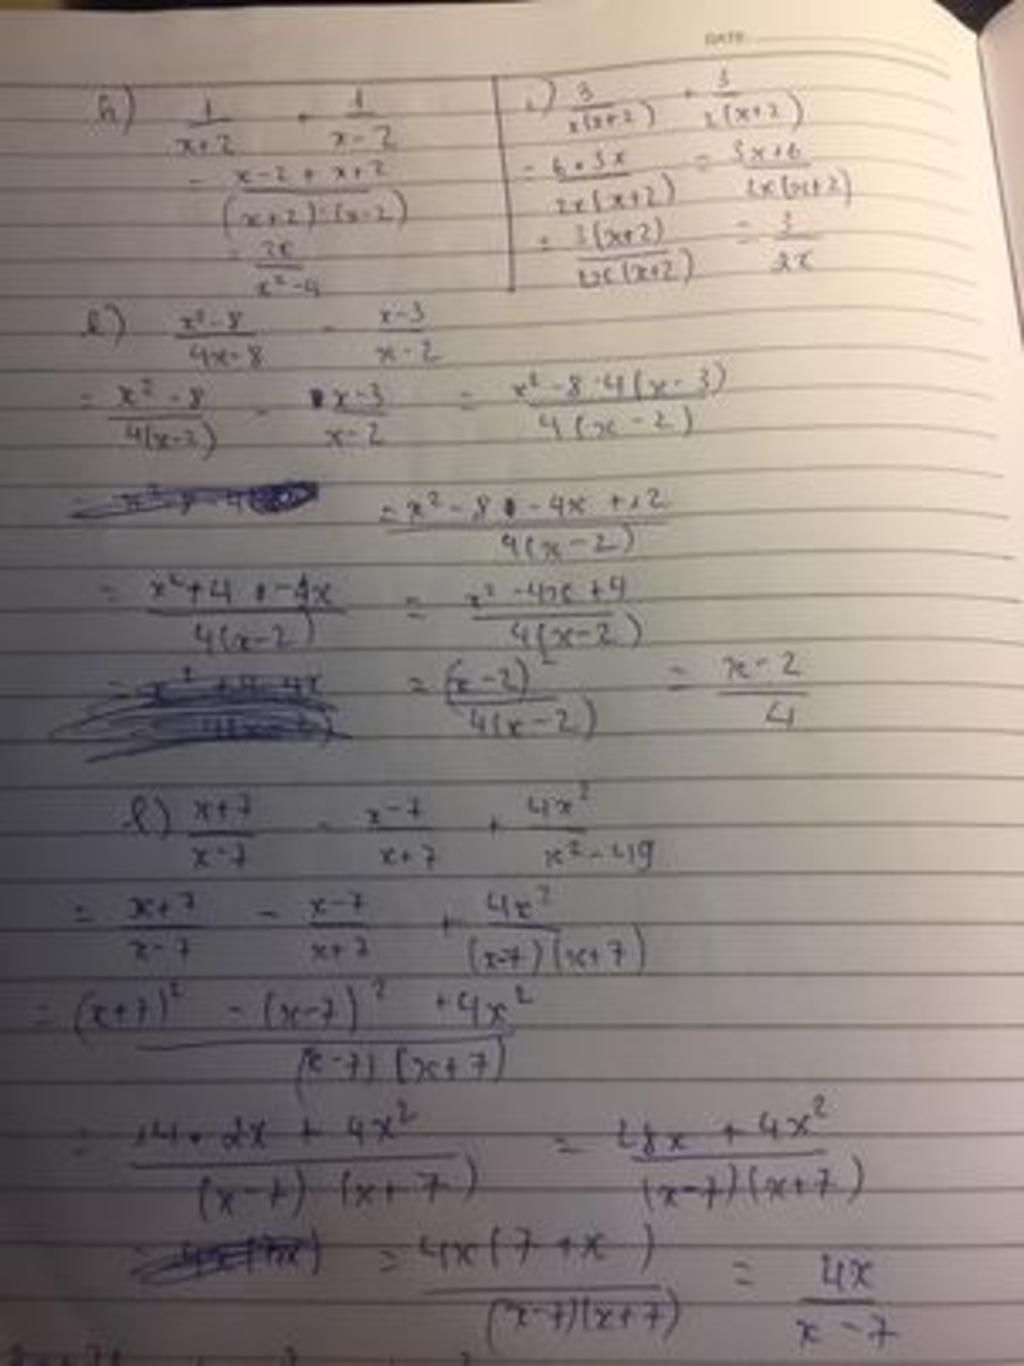 DATE
h) 1/(x+2) + 1/(x-2)
= (x-2+x+2)/((x+2)·(x-2))
= 2x/(x²-4)
i) 3/(x(x+2)) + 3/(2(x+2))
= (6+3x)/(2x(x+2)) = (3x+6)/(2x(x+2))
= 3(x+2)/(2x(x+2)) = 3/(2x)
(x²-8)/(4x-8) - (x-3)/(x-2)
= (x²-8)/(4(x-2)) - (x-3)/(x-2) = (x²-8-4(x-3))/(4(x-2))
= (x²-8-4x+12)/(4(x-2))
= (x²+4-4x)/(4(x-2)) = (x²-4x+4)/(4(x-2))
= (x-2)²/(4(x-2)) = (x-2)/4
l) (x+7)/(x-7) - (x-7)/(x+7) + 4x²/(x²-49)
= (x+7)/(x-7) - (x-7)/(x+7) + 4x²/((x-7)(x+7))
= ((x+7)² - (x-7)² + 4x²)/((x-7)(x+7))
= (14·2x + 4x²)/((x-7)(x+7)) = (28x + 4x²)/((x-7)(x+7))
= 4x(7+x)/((x-7)(x+7)) = 4x/(x-7)